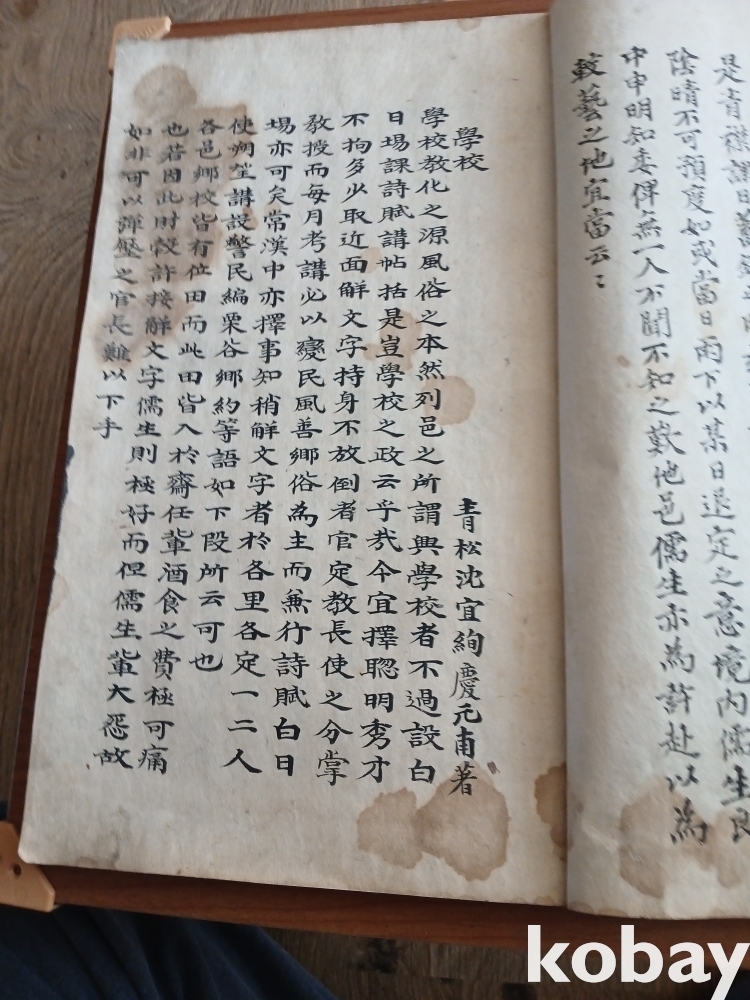 是青襟課日
陰晴不可預度如或當日雨下以某日退定之意境內儒生良
中申明知委俾無一人不聞不知之歎他邑儒生亦為許赴以為
較藝之地宜當云〻
學校
青松沈宜絢慶元甫著
學校教化之源風俗之本然列邑之所謂興學校者不過設白
日場課詩賦講帖括是豈學校之政云乎哉今宜擇聡明秀才
不拘多少取近面觧文字持身不放倒者官定教長使之分掌
教授而每月考講必以變民風善鄉俗為主而兼行詩賦白日
場亦可矣常漢中亦擇事知稍觧文字者於各里各定一二人
使朔望講設警民編栗谷鄉約等語如下段所云可也
各邑鄉校皆有位田而此田皆入於齋任軰酒食之費極可痛
也若因此財穀許接觧文字儒生則極好而但儒生軰大怨故
如非可以彈壓之官長難以下手
kobay